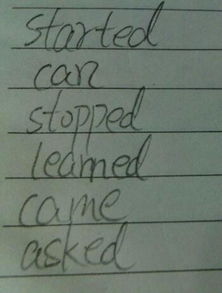 started
can
stopped
learned
came
asked